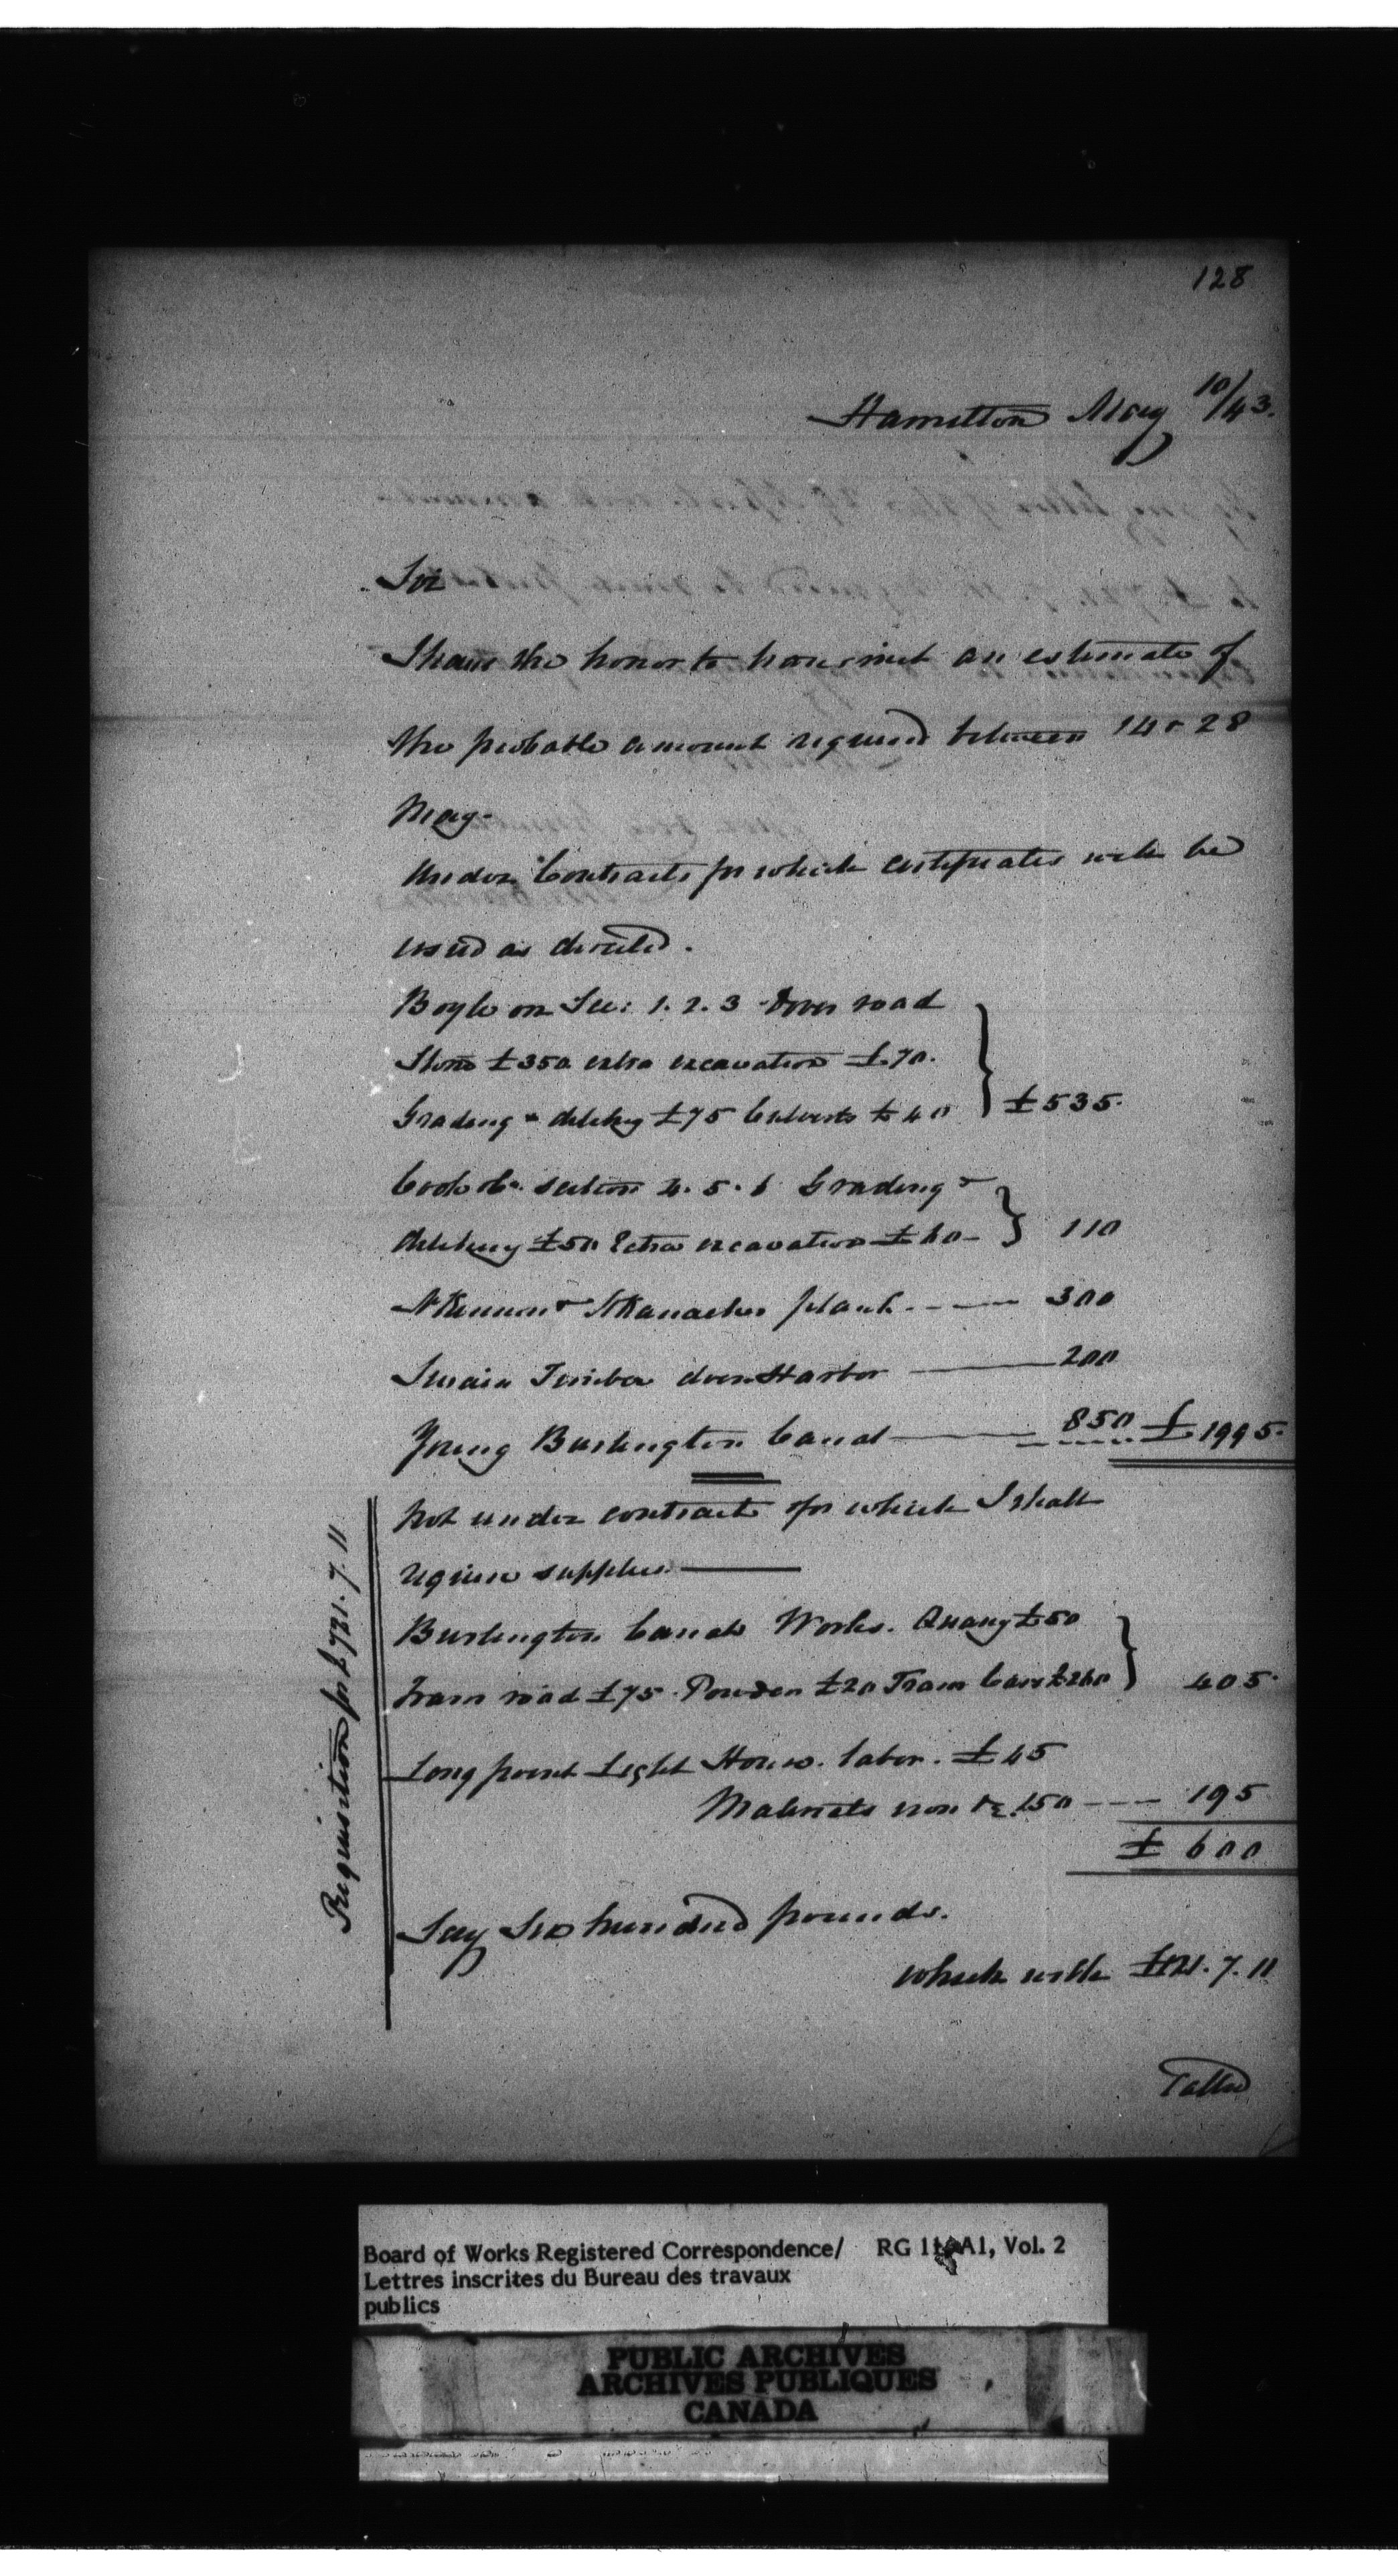 128
Hamilton May 10/43.
Sir
I have the honor to transmit an estimate of
the probable amount required between 14 & 28
May-
Under Contracts for which certificates will be
used as directed.
Boyle on Sec: 1. 2. 3 Dover road
Stone £350 extra excavation £70.
Grading & ditching £75 Culverts £40 } £535.
Cook & Co. section 4. 5. 6 Grading &
ditching £50 Extra excavation £60- } 110
plank ---- 300
Swain Timber dover Harbor — 200
Young Burlington Canal — 850 £1995.
Not under contract for which I shall
require supplies —
Burlington Canal Works. Quarry £50
Tram road £75. Powder £20 Tram Cars £260 } 405
Long point Light House. labor. £45
Materials iron &c. 150 --- 195
£ 600
Say Six hundred pounds.
which with £121. 7. 11
Called
Requisition for £721. 7. 11
Board of Works Registered Correspondence/ RG 11, A1, Vol. 2
Lettres inscrites du Bureau des travaux
publics
PUBLIC ARCHIVES
ARCHIVES PUBLIQUES
CANADA